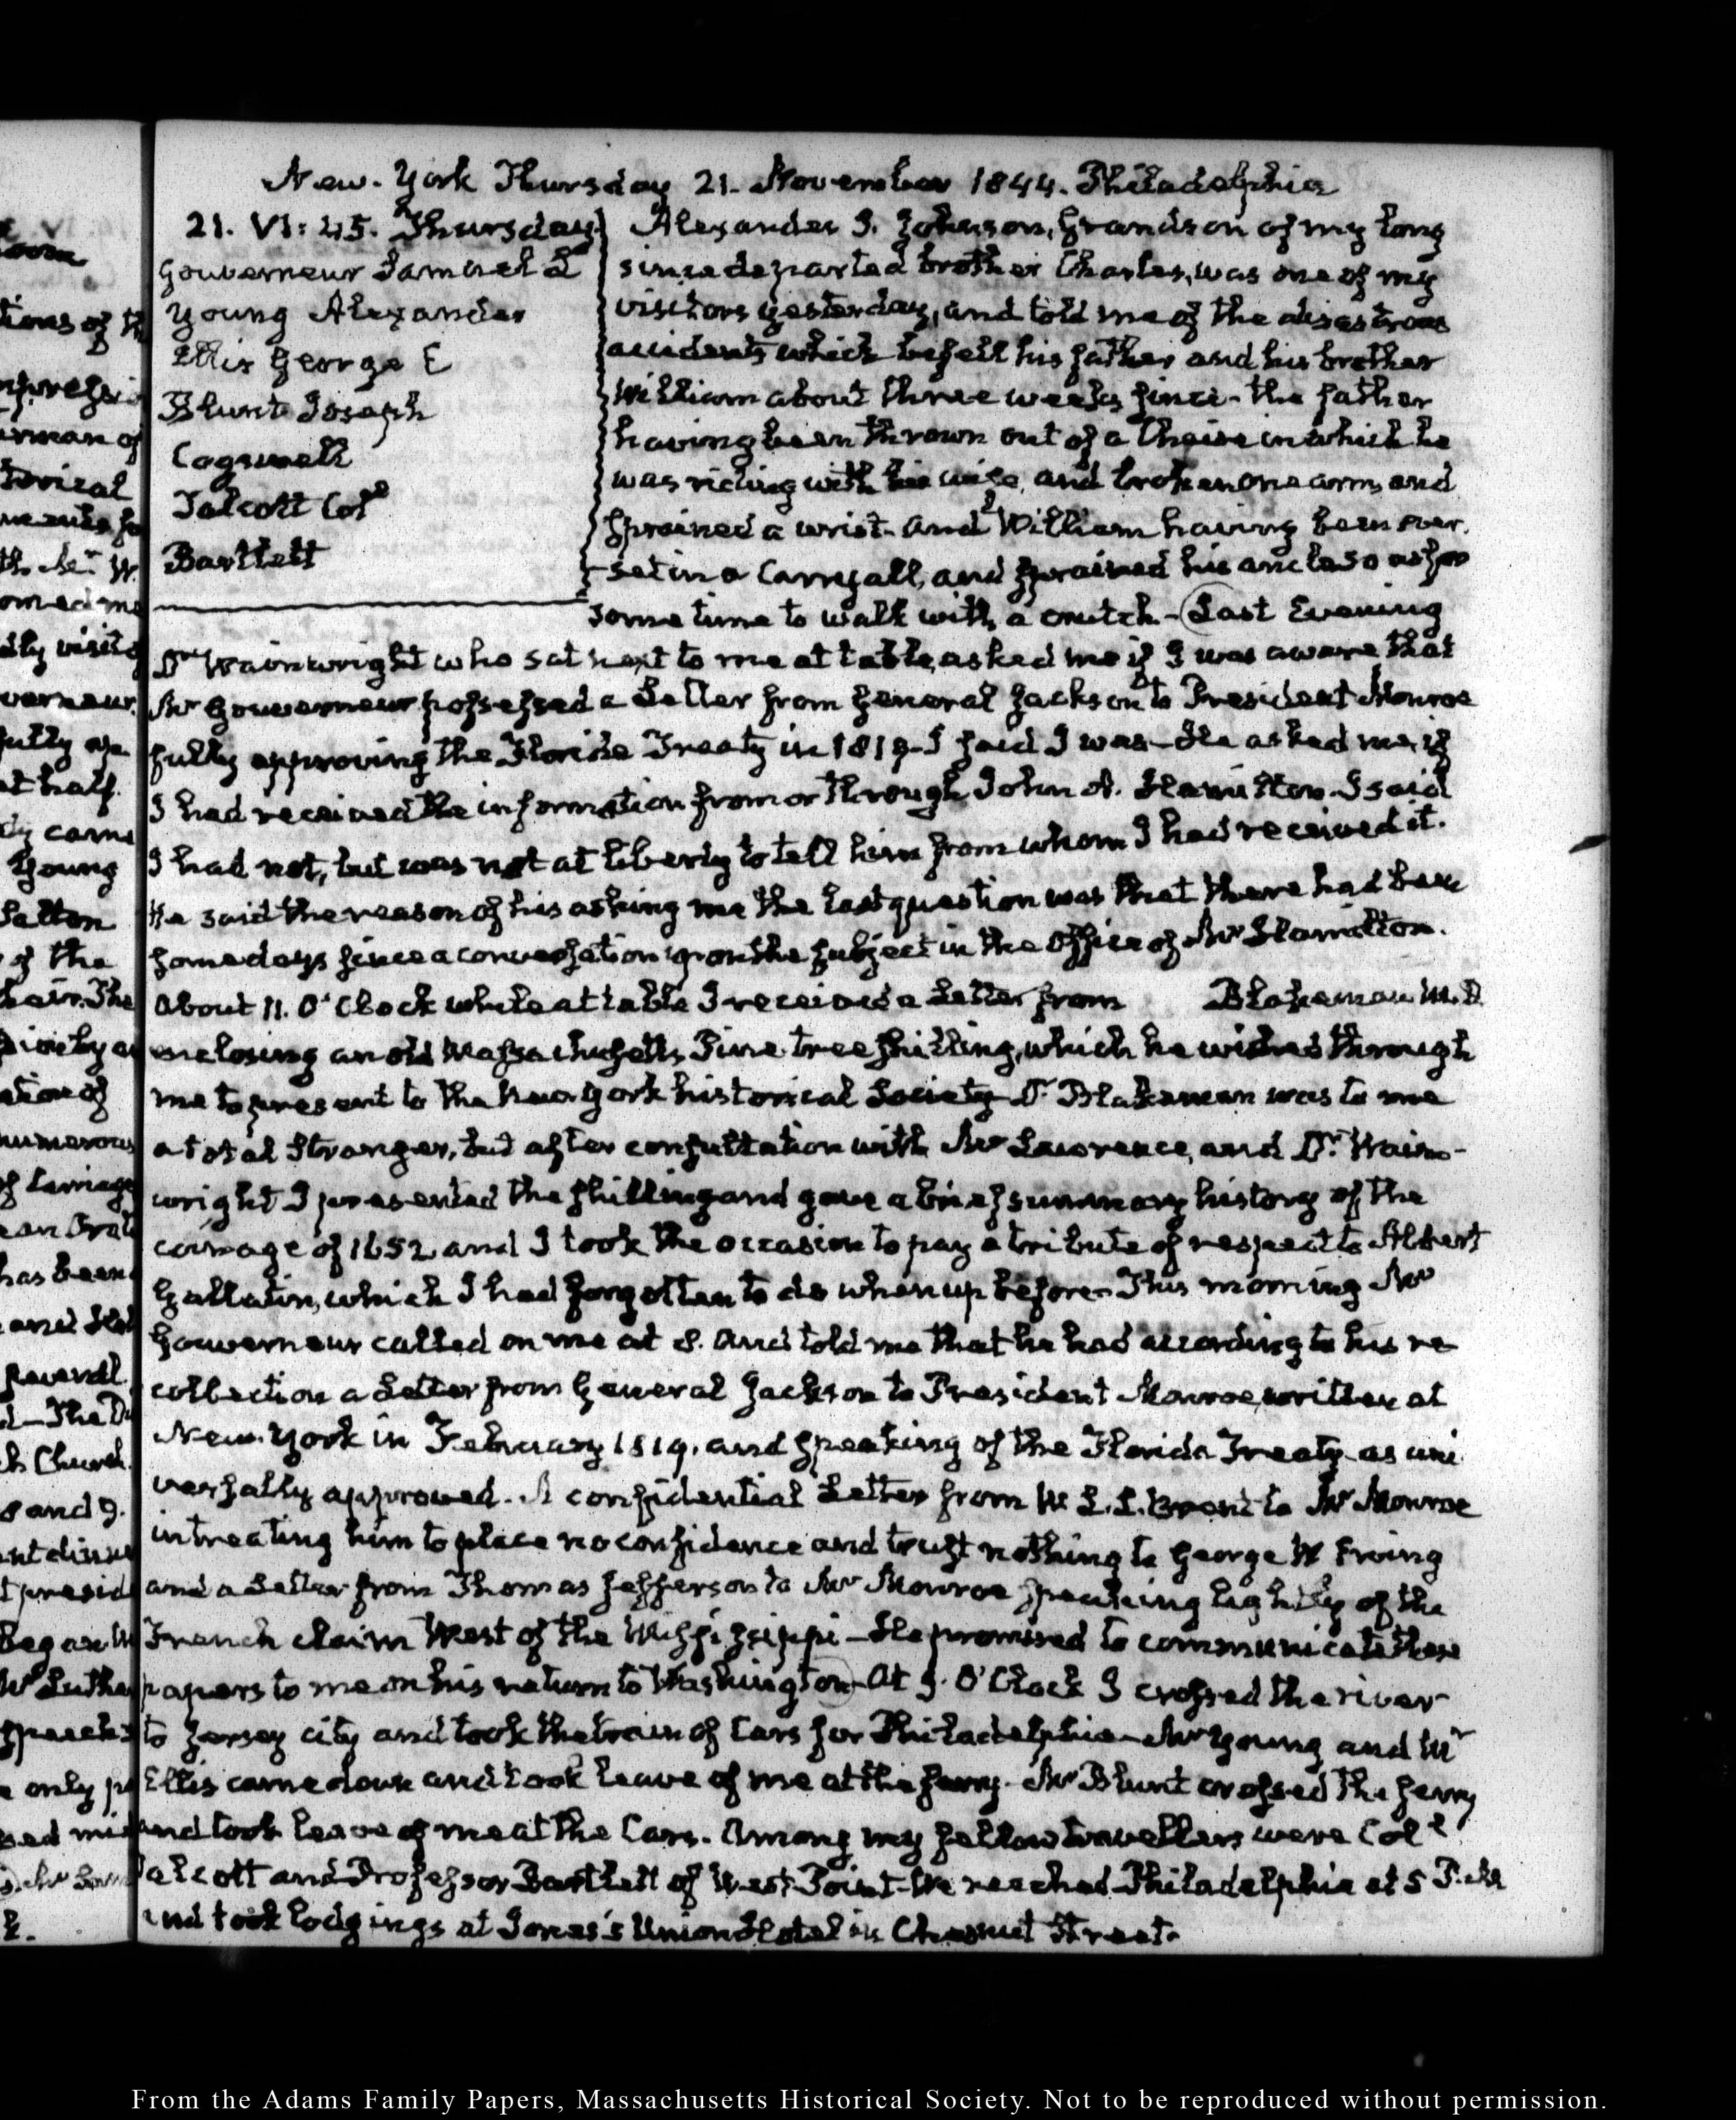 New-York Thursday 21. November 1844. Philadelphia
21. VI:45. Thursday
Gouverneur Samuel L
Young Alexander
Ellis George E
Blunt Joseph
Cogswell
Talcott Col.l
Bartlett
Alexander S. Johnson, Grandson of my long
since departed brother Charles, was one of my
visitors yesterday, and told me of the disastrous
accidents which befell his father and his brother
William about three weeks since- the father
having been thrown out of a Chaise in which he
was riding with his wife, and broken one arm, and
sprained a wrist- and William having been over-
set in a Carryall, and sprained his ancle so as for
some time to walk with a crutch- Last Evening
Dr. Wainwright who sat next to me at table, asked me if I was aware that
Mr Gouverneur possessed a Letter from General Jackson to President Monroe
fully approving the Florida Treaty in 1819- I said I was- He asked me, if
I had received the information from or through John A. Hamilton. I said
I had not, but was not at liberty to tell him from whom I had received it.
He said the reason of his asking me the last question was that there had been
some days since a conversation upon the subject in the Office of Mr Hamilton.
About 11. O'Clock while at table I received a Letter from Blakeman M.D.
enclosing an old Massachusetts Pine tree shilling, which he wished through
me to present to the New-York historical Society- Dr Blakeman was to me
a total Stranger, but after consultation with Mr Lawrence, and Dr. Wain-
wright I presented the shilling and gave a brief summary history of the
coinage of 1652 and I took the occasion to pay a tribute of respect to Albert
Gallatin, which I had forgotten to do when up before- This morning Mr
Gouverneur called on me at 8. and told me that he had according to his re
collection a Letter from General Jackson to President Monroe, written at
New-York in February 1819, and speaking of the Florida Treaty as uni
versally approved. A confidential Letter from W. L. Brent to Mr Monroe
intreating him to place no confidence and trust nothing to George W Erving
and a Letter from Thomas Jefferson to Mr Monroe speaking lightly of the
French claim West of the Mississippi- He promised to communicate these
papers to me on his return to Washington- At 9. O'Clock I crossed the river
to Jersey city and took the train of Cars for Philadelphia- Mr Young and Mr
Ellis came down and took leave of me at the ferry- Mr Blunt crossed the ferry
and took leave of me at the Cars. Among my fellow travellers were Col.l
Talcott and Professor Bartlett of West-Point- We reached Philadelphia at 5 P.M
and took lodgings at Jones's Union Hotel in Chesnut Street.
From the Adams Family Papers, Massachusetts Historical Society. Not to be reproduced without permission.